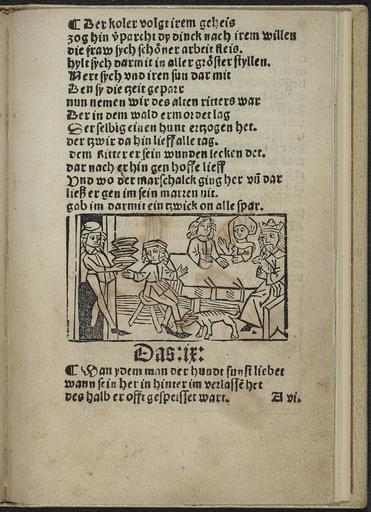 ¶ Der koler volgt irem geheis
zog hin v̈parcht dy dinck nach irem willen
die fraw sych schöner arbeit fleis.
hylt sych darmit in aller gröster styllen.
Nert sych vnd iren sun dar mit
Den sy die tzeit gepar
nun nemen wir des alten ritters war
Der in dem wald ermordet lag
Der selbig einen hunt ertzogen het.
der tzwir da hin lieff alle tag.
dem Ritter er sein wunden lecken det.
dar nach er hin gen hoffe lieff
Vnd wo der marschalck ging her vñ dar
ließ er gen im sein marren nit.
gab im darmit ein tzwick on alle spar.
Das:ix:
¶ Wan ydem man der hundt sunst liebet
wann sein her in hinter im verlassē het
des halb er offt gespeisset wart. A vi.